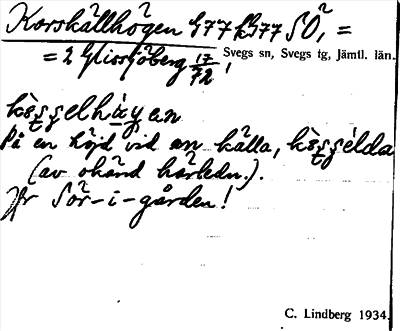 Korskällhögen 977 K977 SO, =
= 2 Glissjöberg 17/72 !
Svegs sn, Svegs tg, Jämtl. län.
På en höjd vid en källa,
(av okänd härledn.).
Jfr Sör-i-gården!
C. Lindberg 1934.